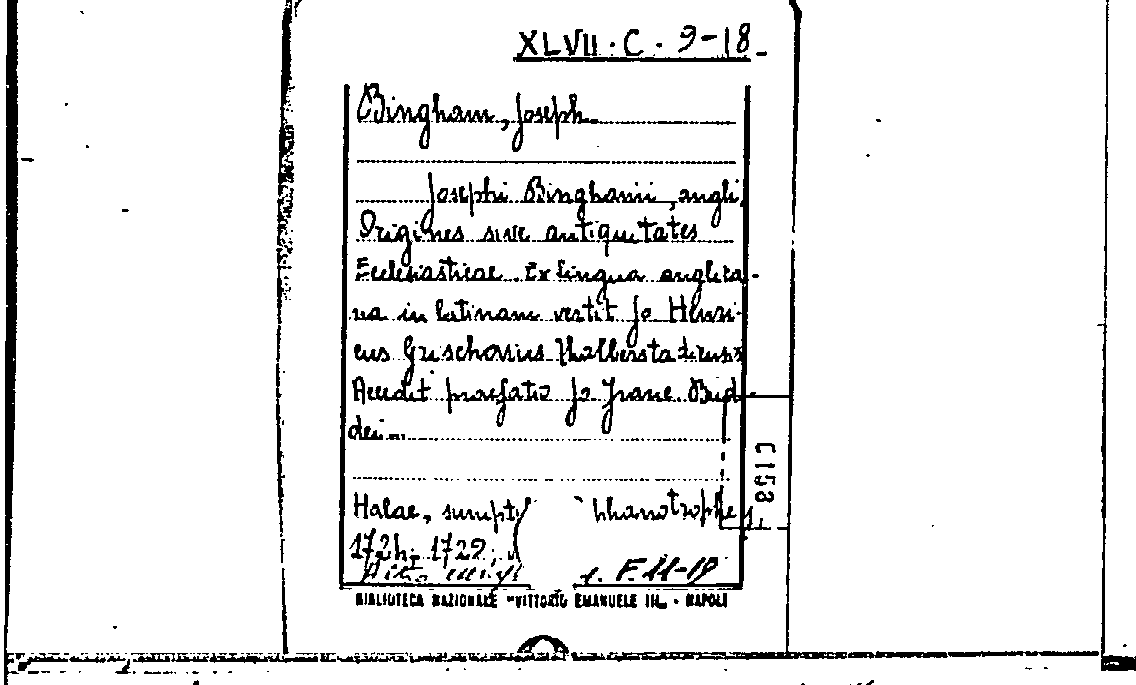 XLVII. C. 9-18
Bingham, Joseph
Josephi Binghamii, angli,
Origines sive antiquitates
Ecclesiasticae. Ex lingua anglica-
na in latinam vertit Jo Henri-
cus Grischovius Halberstadiensis
Accedit praefatio Jo Franc. Bud-
dei
Halae, sumpt phanotrophei,
1724-1729
F. 11-19
BIBLIOTECA NAZIONALE "VITTORIO EMANUELE III" - NAPOLI
0158